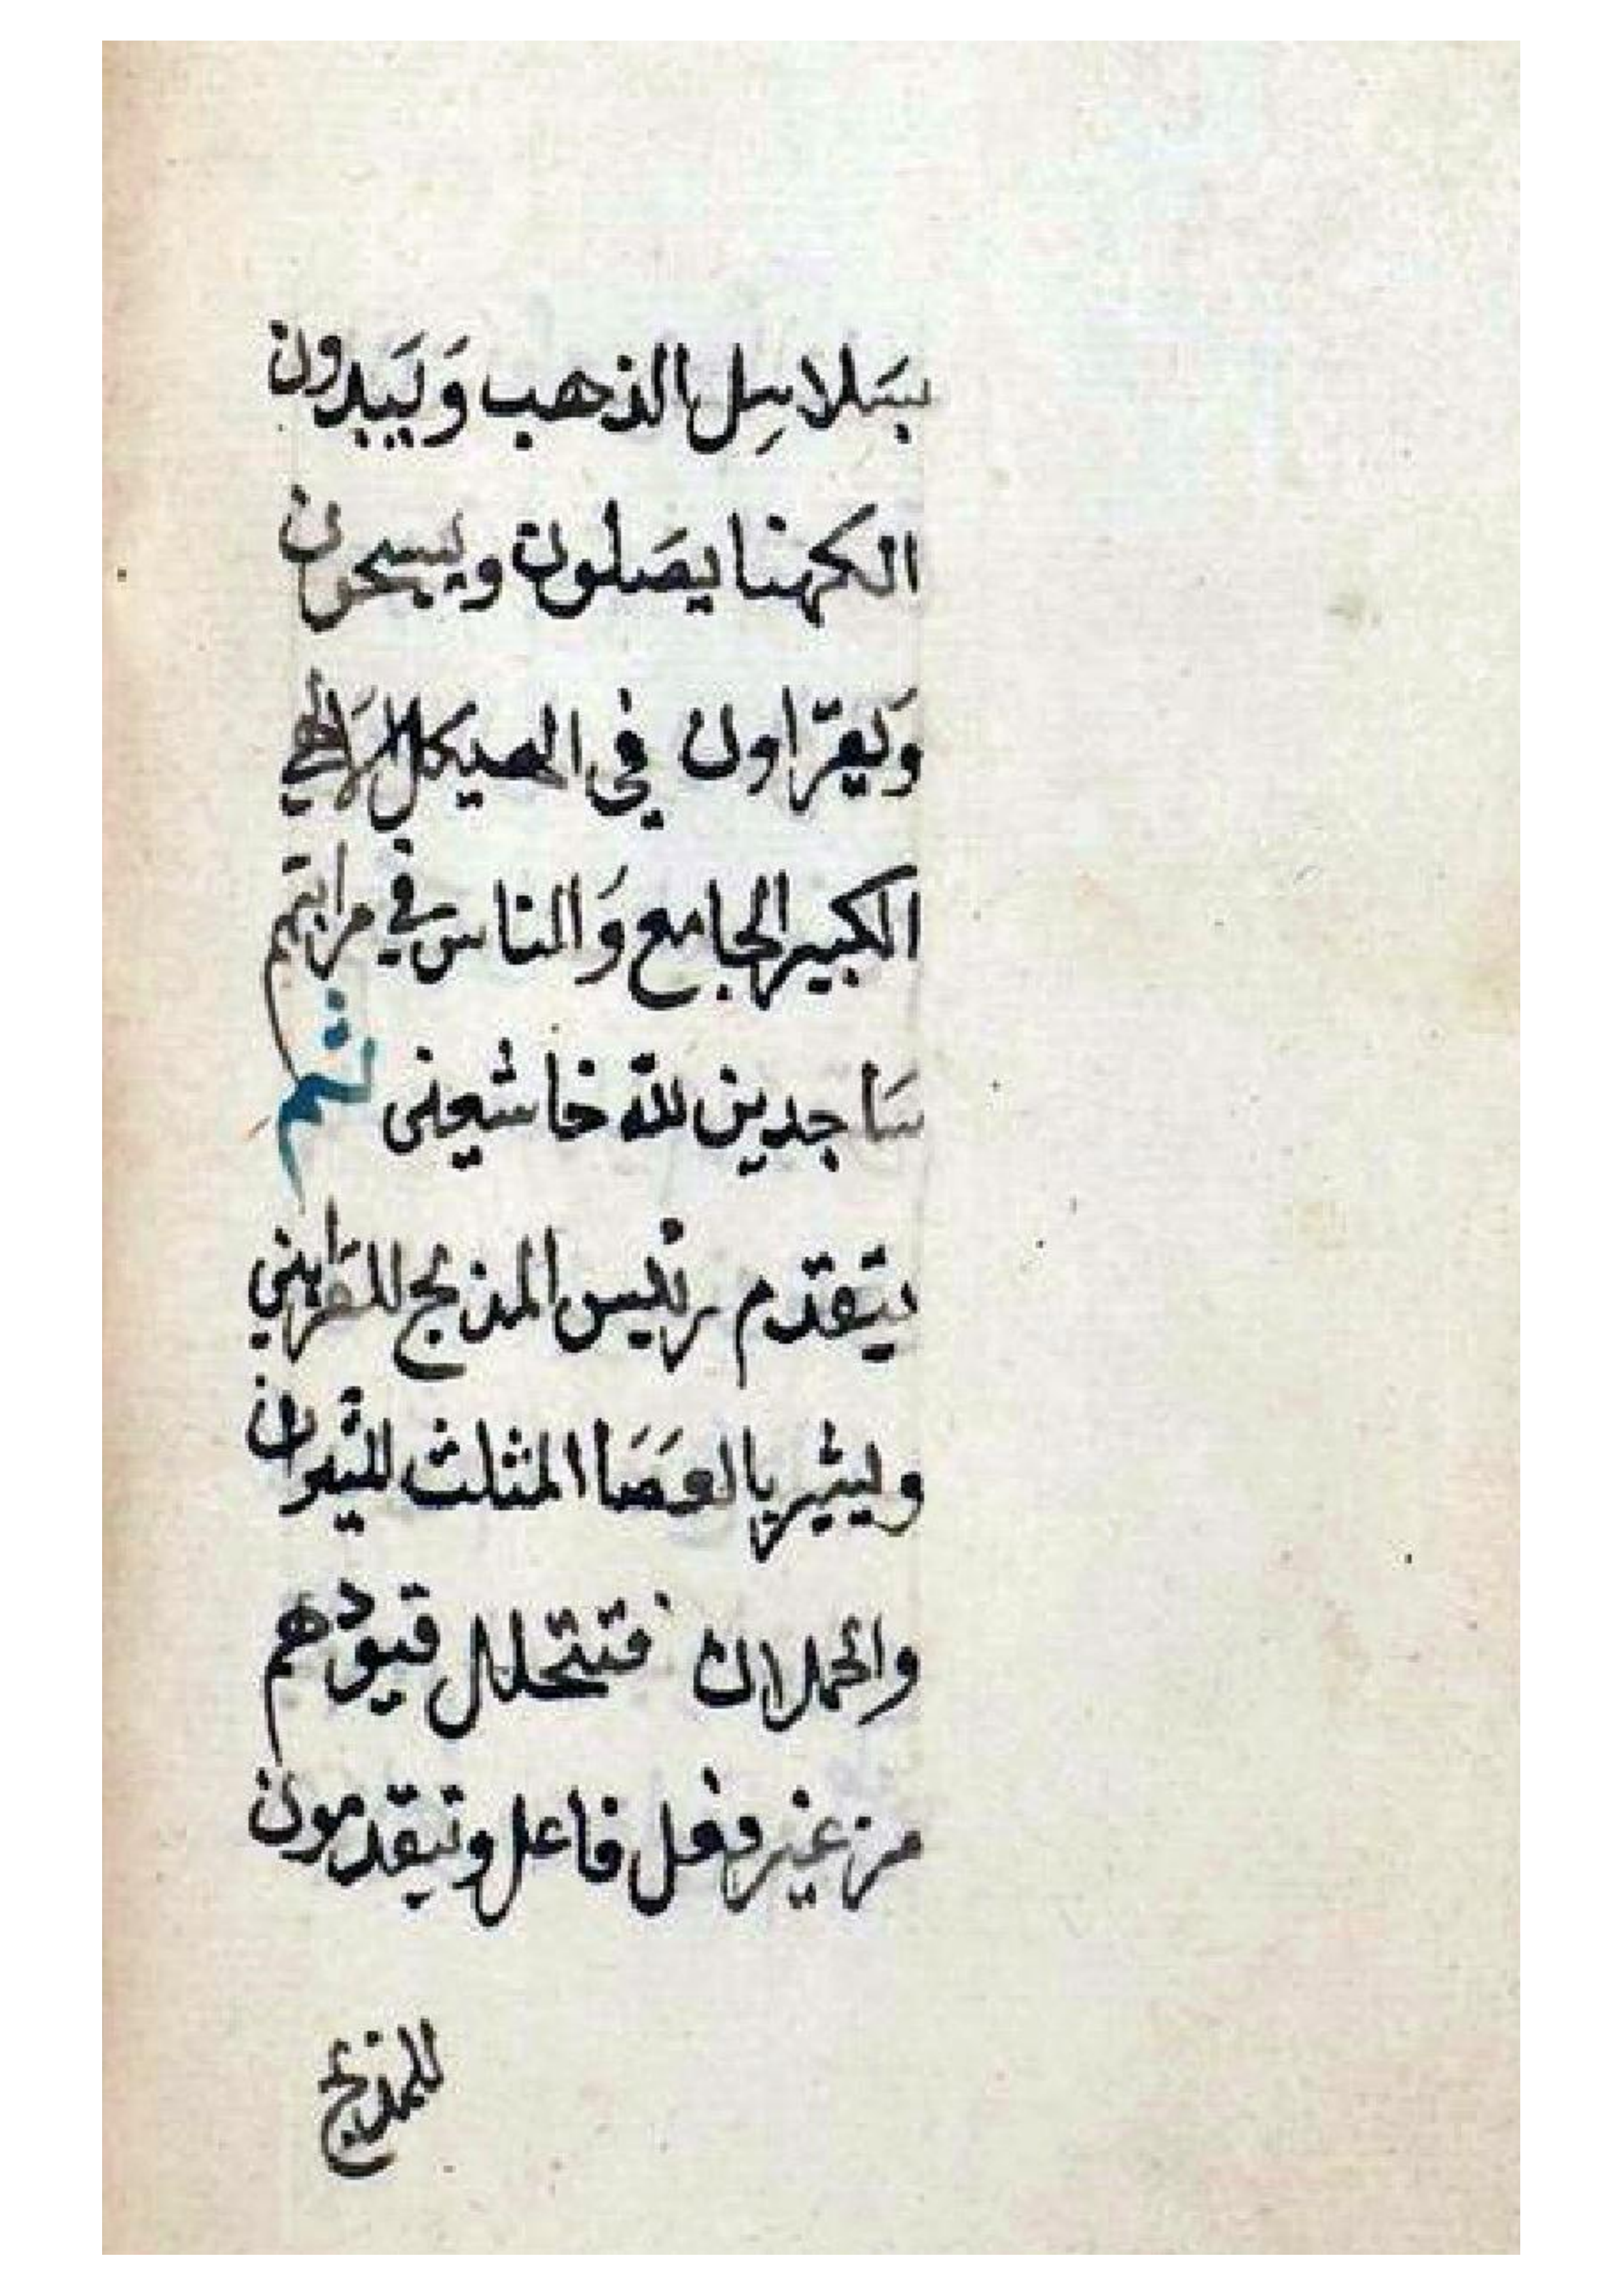 بسَلاسِل الذهب وَيَبدون
الكهنا يصَلون ويسبحون
وَيقرّاون في الهيكل الالهي
الكبير الجامع وَالناس في مراتبهم
سَاجدين للّه خاشعين ثم
يتقدّم رئيس المذبح للقرابين
وليشير بالعصَا المثلث للثيران
والحملان فتتحلل قيودهم
من غير فعل فاعل وتيقدمون
للمذبح